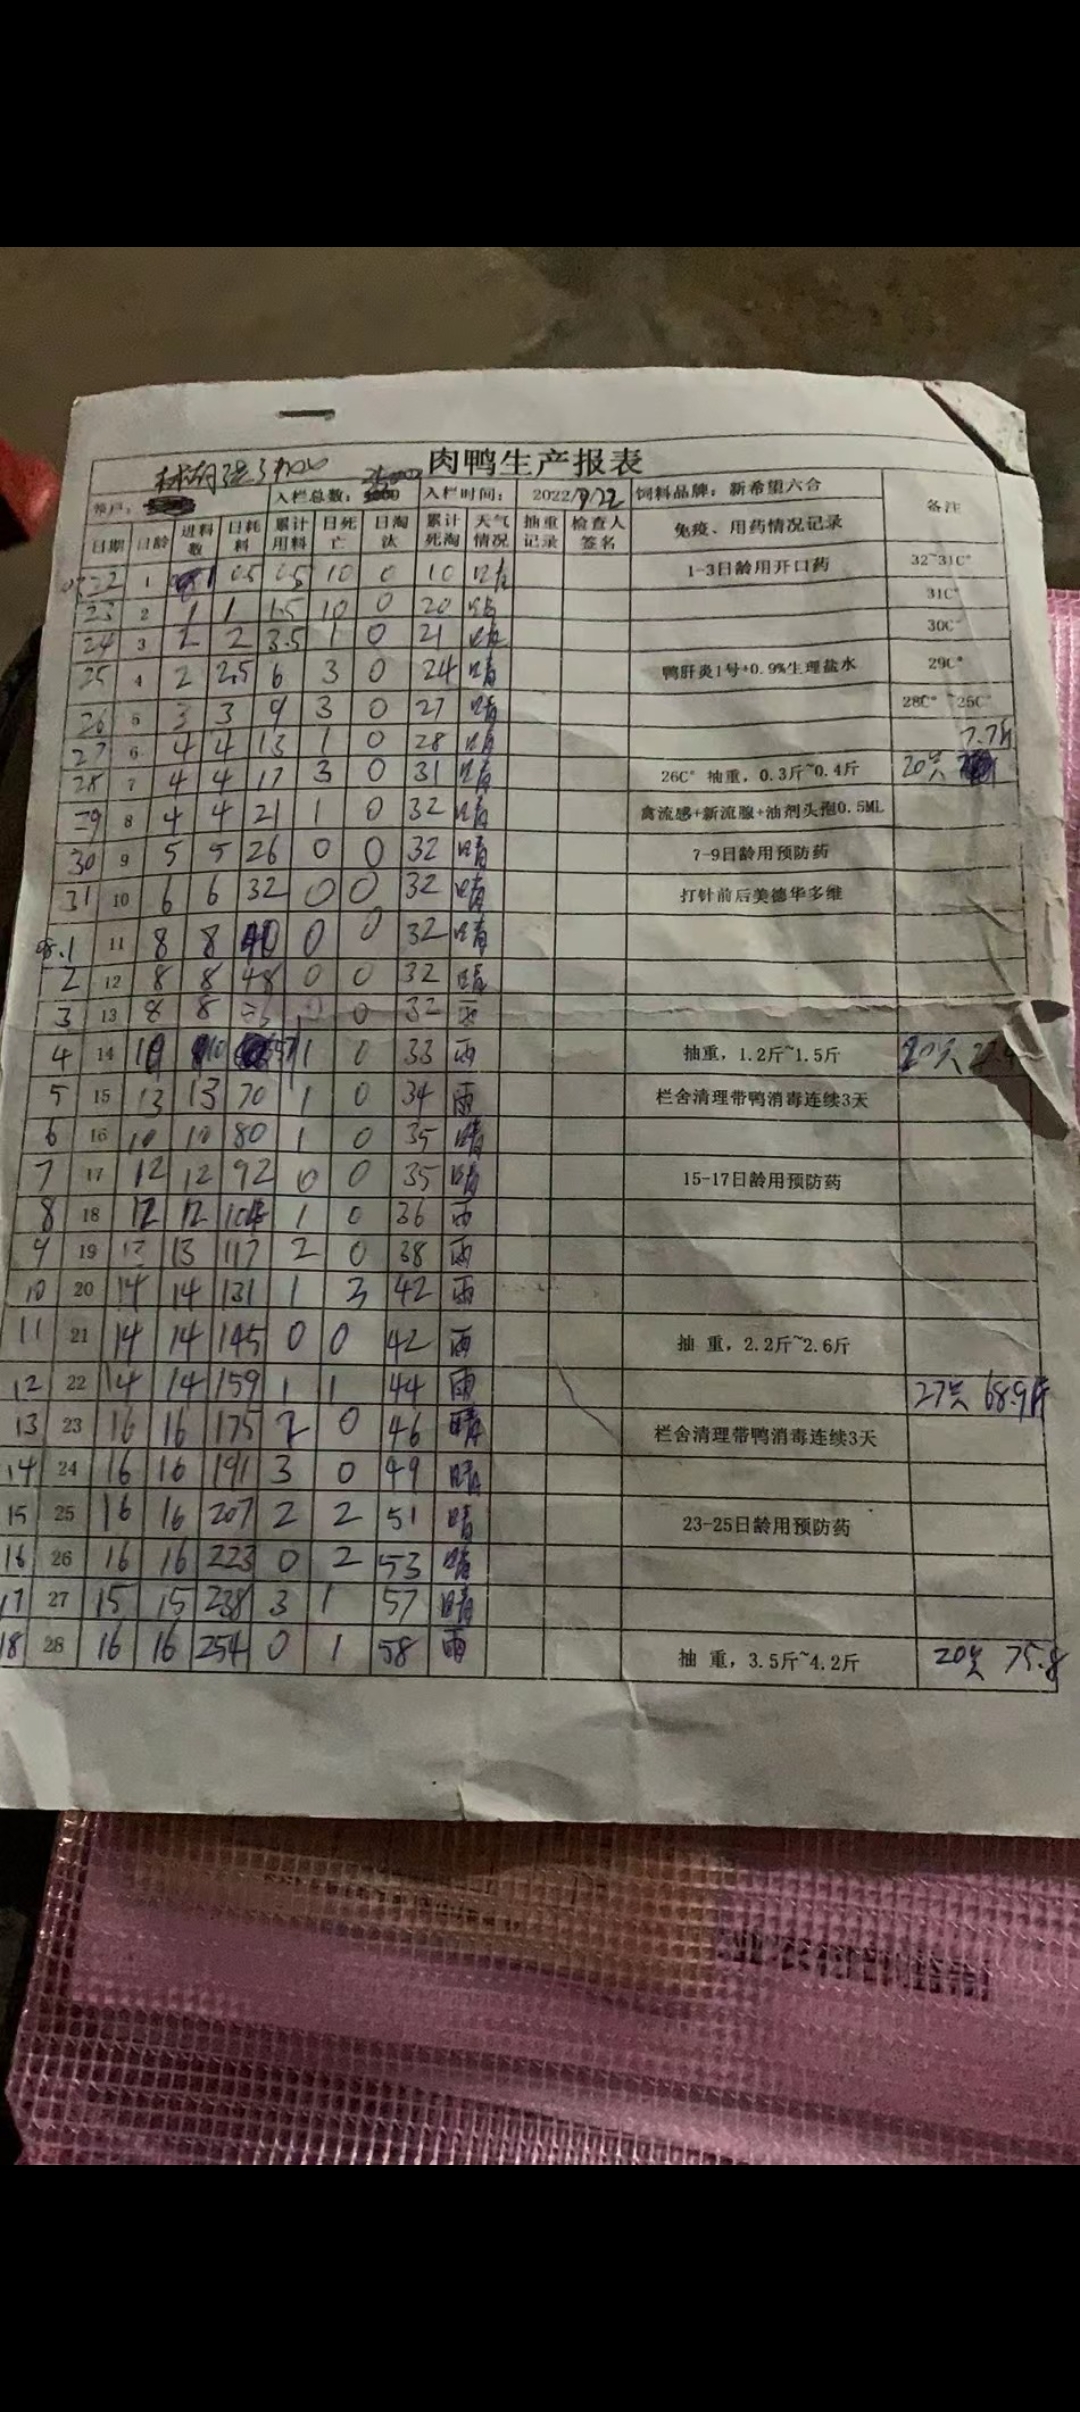 肉鸭生产报表
养户： 入栏总数： 入栏时间： 2022/7/22 饲料品牌：新希望六合 备注
日期 日龄 进料数 日耗料 累计用料 日死亡 日淘汰 累计死淘 天气情况 抽重记录 检查人签名 免疫、用药情况记录
22 1 1 0.5 0.5 10 0 10 晴 1-3日龄用开口药 32~31C°
23 2 1 1 1.5 10 0 20 晴 31C°
24 3 2 2 3.5 1 0 21 晴 30C°
25 4 2 2.5 6 3 0 24 晴 鸭肝炎1号+0.9%生理盐水 29C°
26 5 3 3 9 3 0 27 晴 28C° ~25C°
27 6 4 4 13 1 0 28 晴 7.7斤
28 7 4 4 17 3 0 31 晴 26C° 抽重，0.3斤~0.4斤 20只
29 8 4 4 21 1 0 32 晴 禽流感+新流腺+油剂头孢0.5ML
30 9 5 5 26 0 0 32 晴 7-9日龄用预防药
31 10 6 6 32 0 0 32 晴 打针前后美德华多维
08.1 11 8 8 40 0 0 32 晴
2 12 8 8 48 0 0 32 晴
3 13 8 8 0 32 雨
4 14 10 10 57 1 0 33 雨 抽重，1.2斤~1.5斤 20只
5 15 13 13 70 1 0 34 雨 栏舍清理带鸭消毒连续3天
6 16 10 10 80 1 0 35 晴
7 17 12 12 92 0 0 35 晴 15-17日龄用预防药
8 18 12 12 104 1 0 36 雨
9 19 13 13 117 2 0 38 雨
10 20 14 14 131 1 3 42 雨
11 21 14 14 145 0 0 42 雨 抽 重，2.2斤~2.6斤
12 22 14 14 159 1 1 44 雨 27只 68.9斤
13 23 16 16 175 2 0 46 晴 栏舍清理带鸭消毒连续3天
14 24 16 16 191 3 0 49 晴
15 25 16 16 207 2 2 51 晴 23-25日龄用预防药
16 26 16 16 223 0 2 53 晴
17 27 15 15 238 3 1 57 晴
18 28 16 16 254 0 1 58 雨 抽 重，3.5斤~4.2斤 20只 75.8